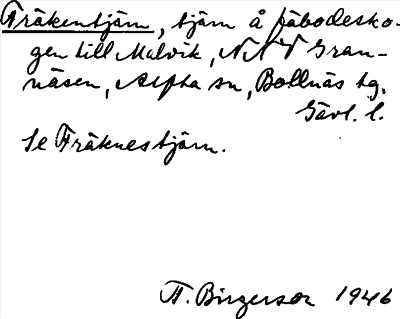 Fräkentjärn, tjärn å fäbodesko-
gen till Malvik, NNV Gran-
näsen, Alfta sn, Bollnäs tg.
Gävl. l.
Se Fräknestjärn.
F. Birgerson 1946